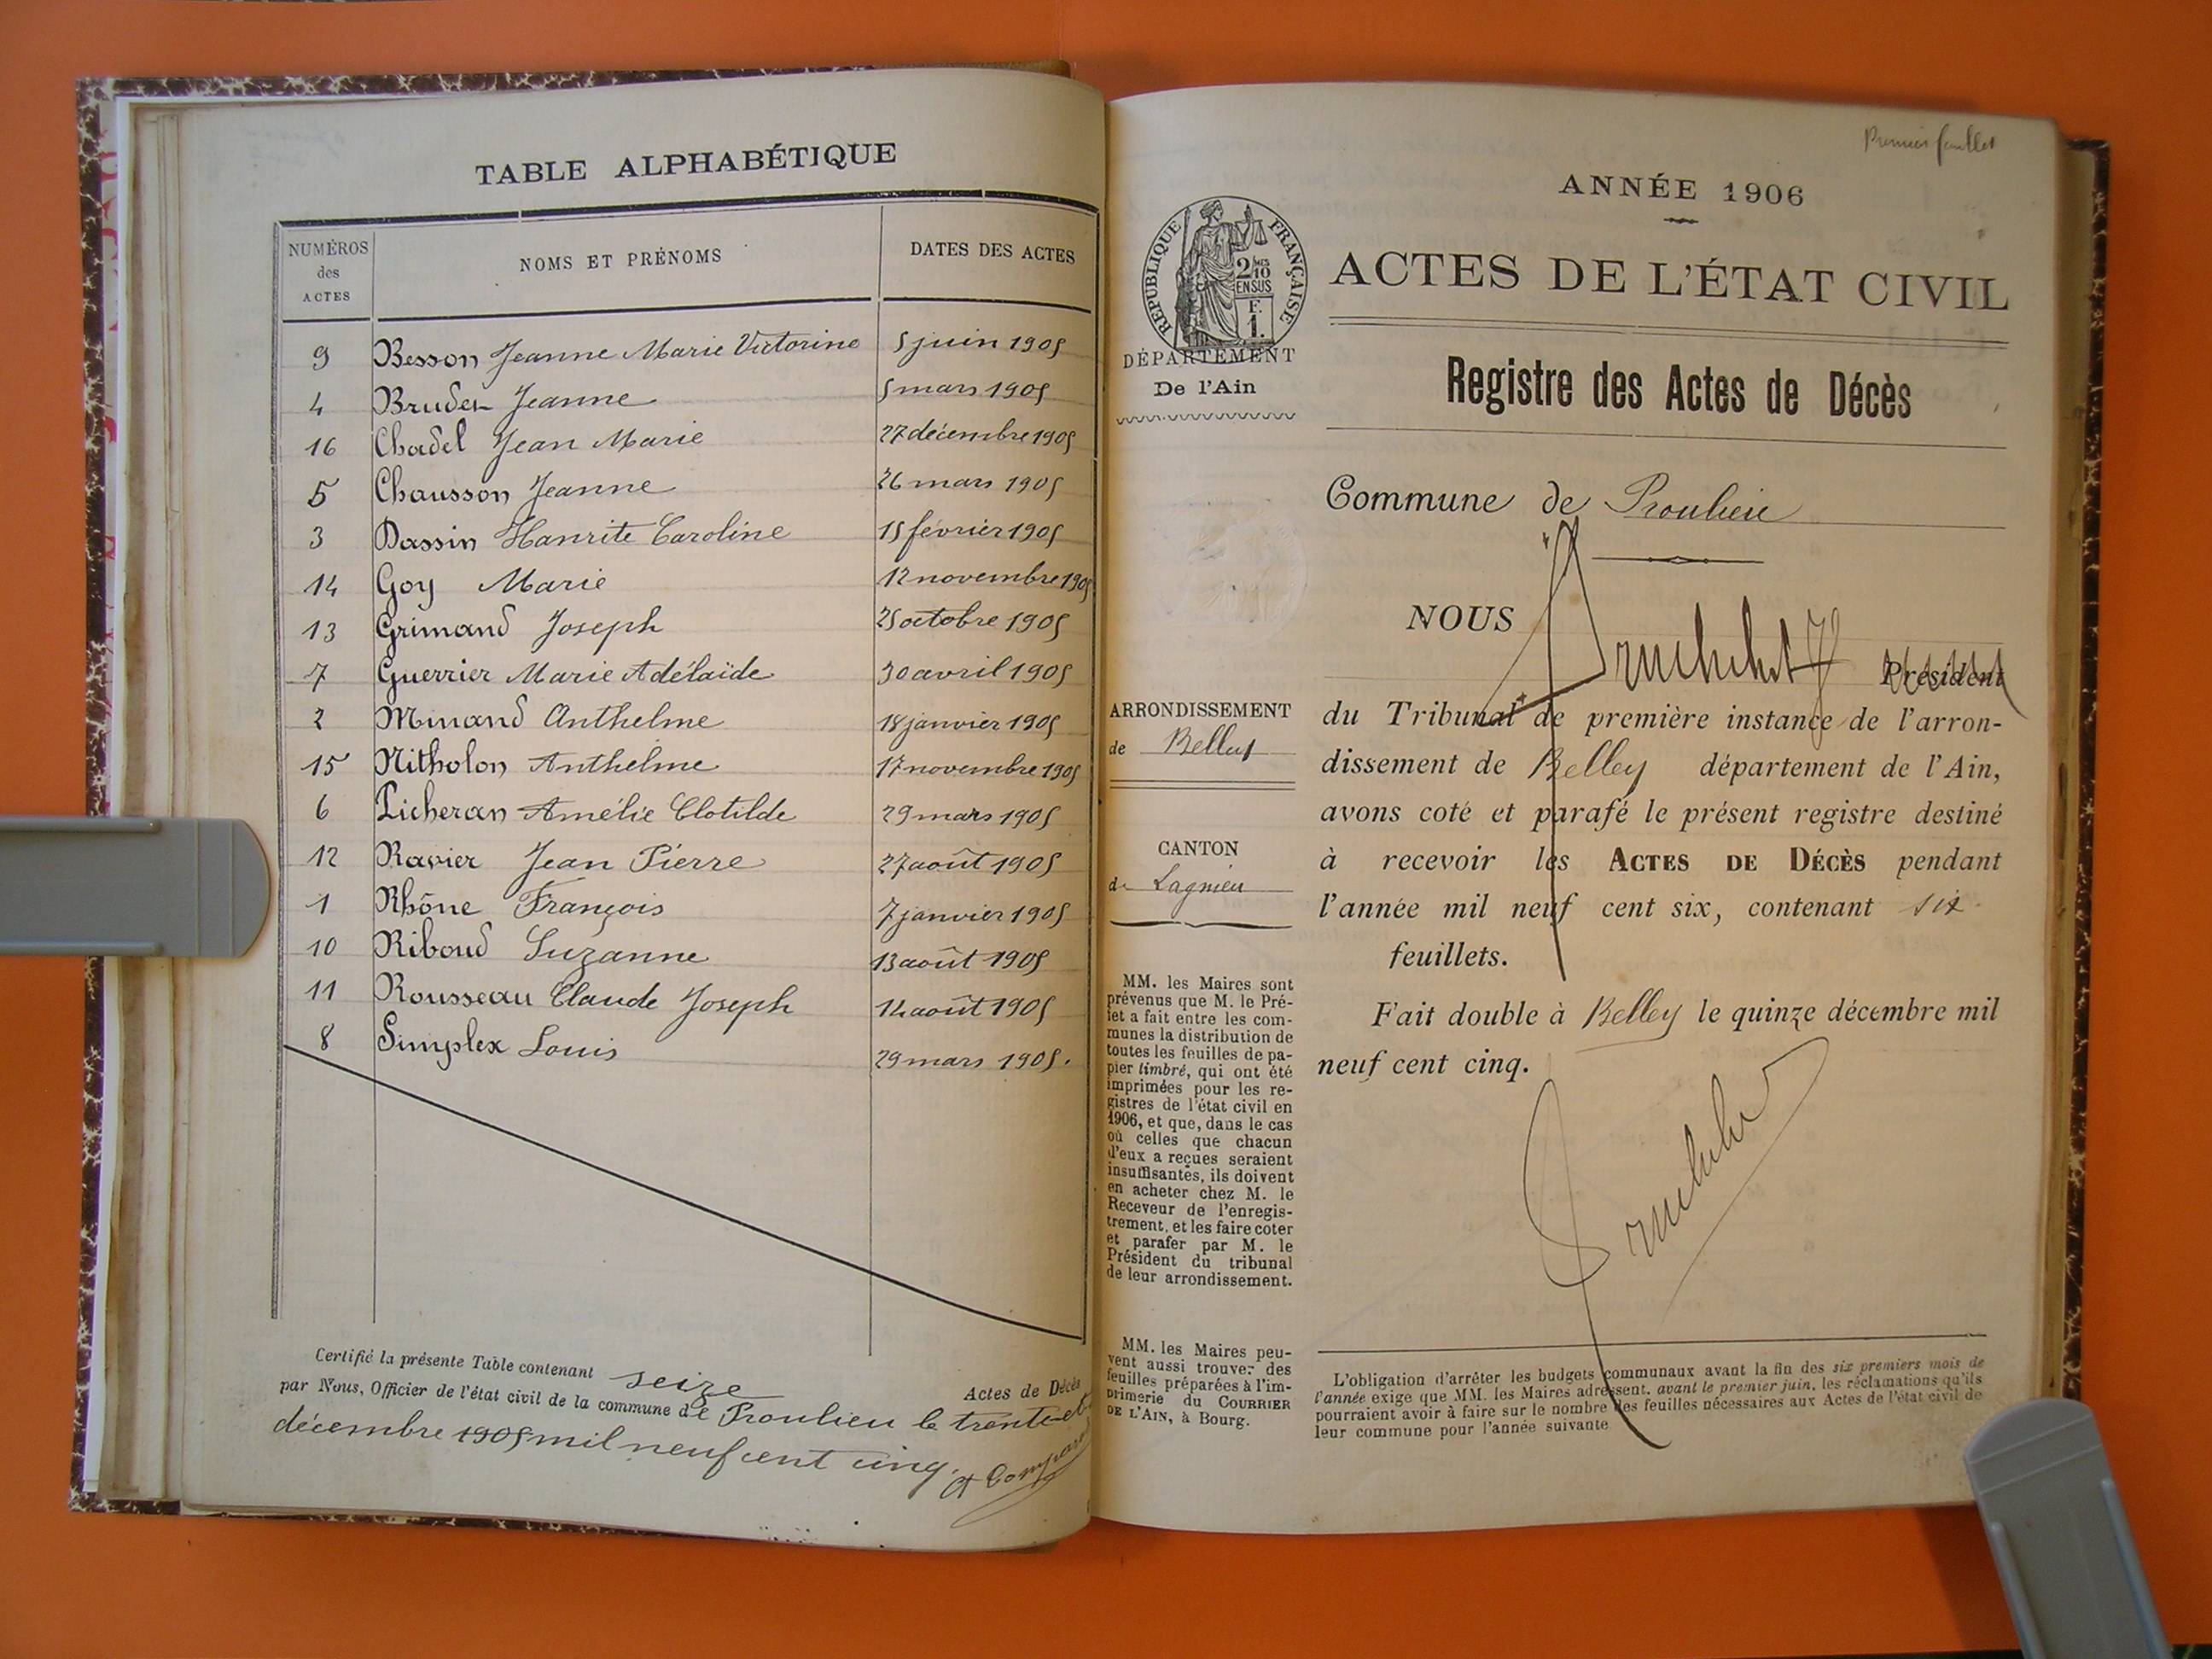 TABLE ALPHABÉTIQUE
NUMÉROS des ACTES NOMS ET PRÉNOMS DATES DES ACTES
9 Besson Jeanne Marie Victorine 5 juin 1905
4 Bruder Jeanne 5 mars 1905
16 Chadel Jean Marie 27 décembre 1905
5 Chausson Jeanne 26 mars 1905
3 Dassin Hanrite Caroline 15 février 1905
14 Goy Marie 12 novembre 1905
13 Grimand Joseph 25 octobre 1905
7 Guerrier Marie Adélaïde 30 avril 1905
2 Minand Anthelme 18 janvier 1905
15 Nitholon Anthelme 17 novembre 1905
6 Picheran Amélie Clotilde 29 mars 1905
12 Ravier Jean Pierre 27 août 1905
1 Rhône François 7 janvier 1905
10 Riboud Suzanne 13 août 1905
11 Rousseau Claude Joseph 14 août 1905
8 Simplex Louis 29 mars 1905.
Certifié la présente Table contenant seize Actes de Décès
par Nous, Officier de l'état civil de la commune de Proulieu le trente et
décembre 1905 mil neuf cent cinq.
Premier feuillet
ANNÉE 1906
ACTES DE L'ÉTAT CIVIL
RÉPUBLIQUE FRANÇAISE
2 MES 10
EN SUS
F.
1.
DÉPARTEMENT
De l'Ain
Registre des Actes de Décès
Commune de Proulieu
NOUS
Président
du Tribunal de première instance de l'arron-
dissement de Belley département de l'Ain,
avons coté et parafé le présent registre destiné
à recevoir les ACTES DE DÉCÈS pendant
l'année mil neuf cent six, contenant six
feuillets.
Fait double à Belley le quinze décembre mil
neuf cent cinq.
ARRONDISSEMENT
de Belley
CANTON
de Lagnieu
MM. les Maires sont
prévenus que M. le Pré-
fet a fait entre les com-
munes la distribution de
toutes les feuilles de pa-
pier timbré, qui ont été
imprimées pour les re-
gistres de l'état civil en
1906, et que, dans le cas
où celles que chacun
d'eux a reçues seraient
insuffisantes, ils doivent
en acheter chez M. le
Receveur de l'enregis-
trement, et les faire coter
et parafer par M. le
Président du tribunal
de leur arrondissement.
MM. les Maires peu-
vent aussi trouver des
feuilles préparées à l'im-
primerie du COURRIER
DE L'AIN, à Bourg.
L'obligation d'arrêter les budgets communaux avant la fin des six premiers mois de
l'année exige que MM. les Maires adressent, avant le premier juin, les réclamations qu'ils
pourraient avoir à faire sur le nombre des feuilles nécessaires aux Actes de l'état civil de
leur commune pour l'année suivante